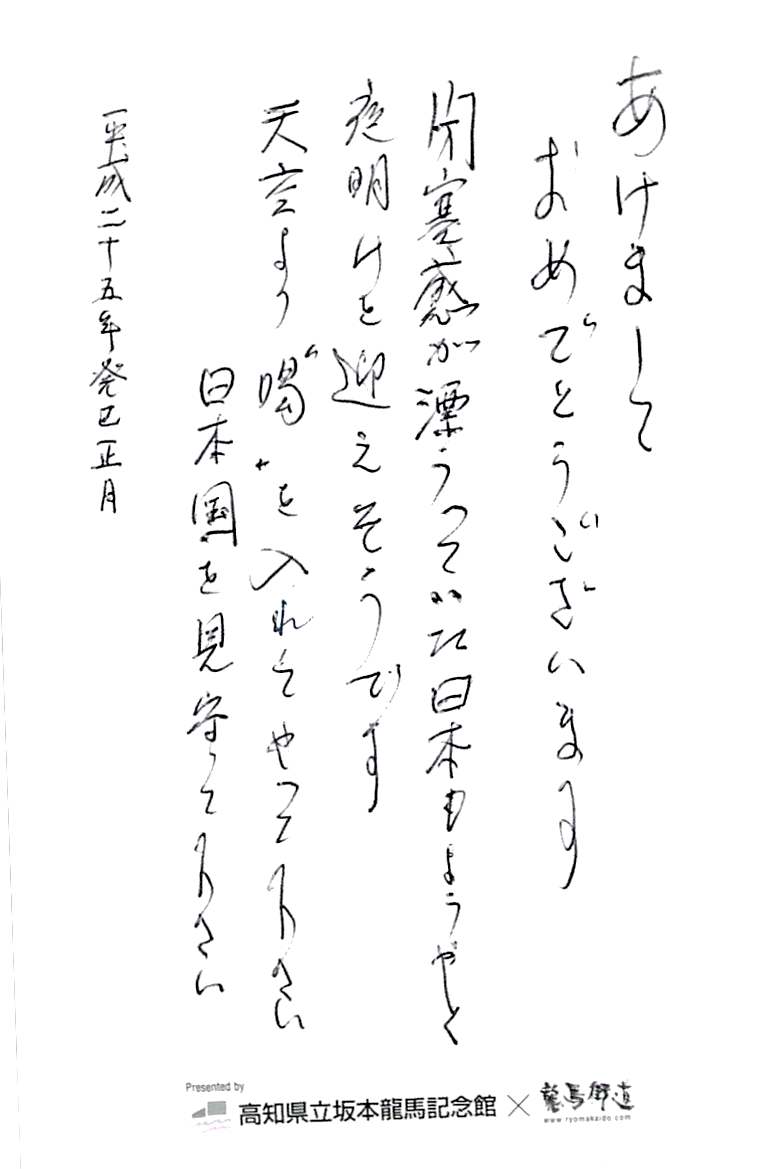 あけまして
おめでとうございます
閉塞感が漂うっていた日本もようやく
夜明けを迎えそうです
天空より〝喝〟を入れてやって下さい
日本国を見守って下さい
平成二十五年癸巳正月
Presented by
高知県立坂本龍馬記念館 × 龍馬街道
www.ryomakaido.com